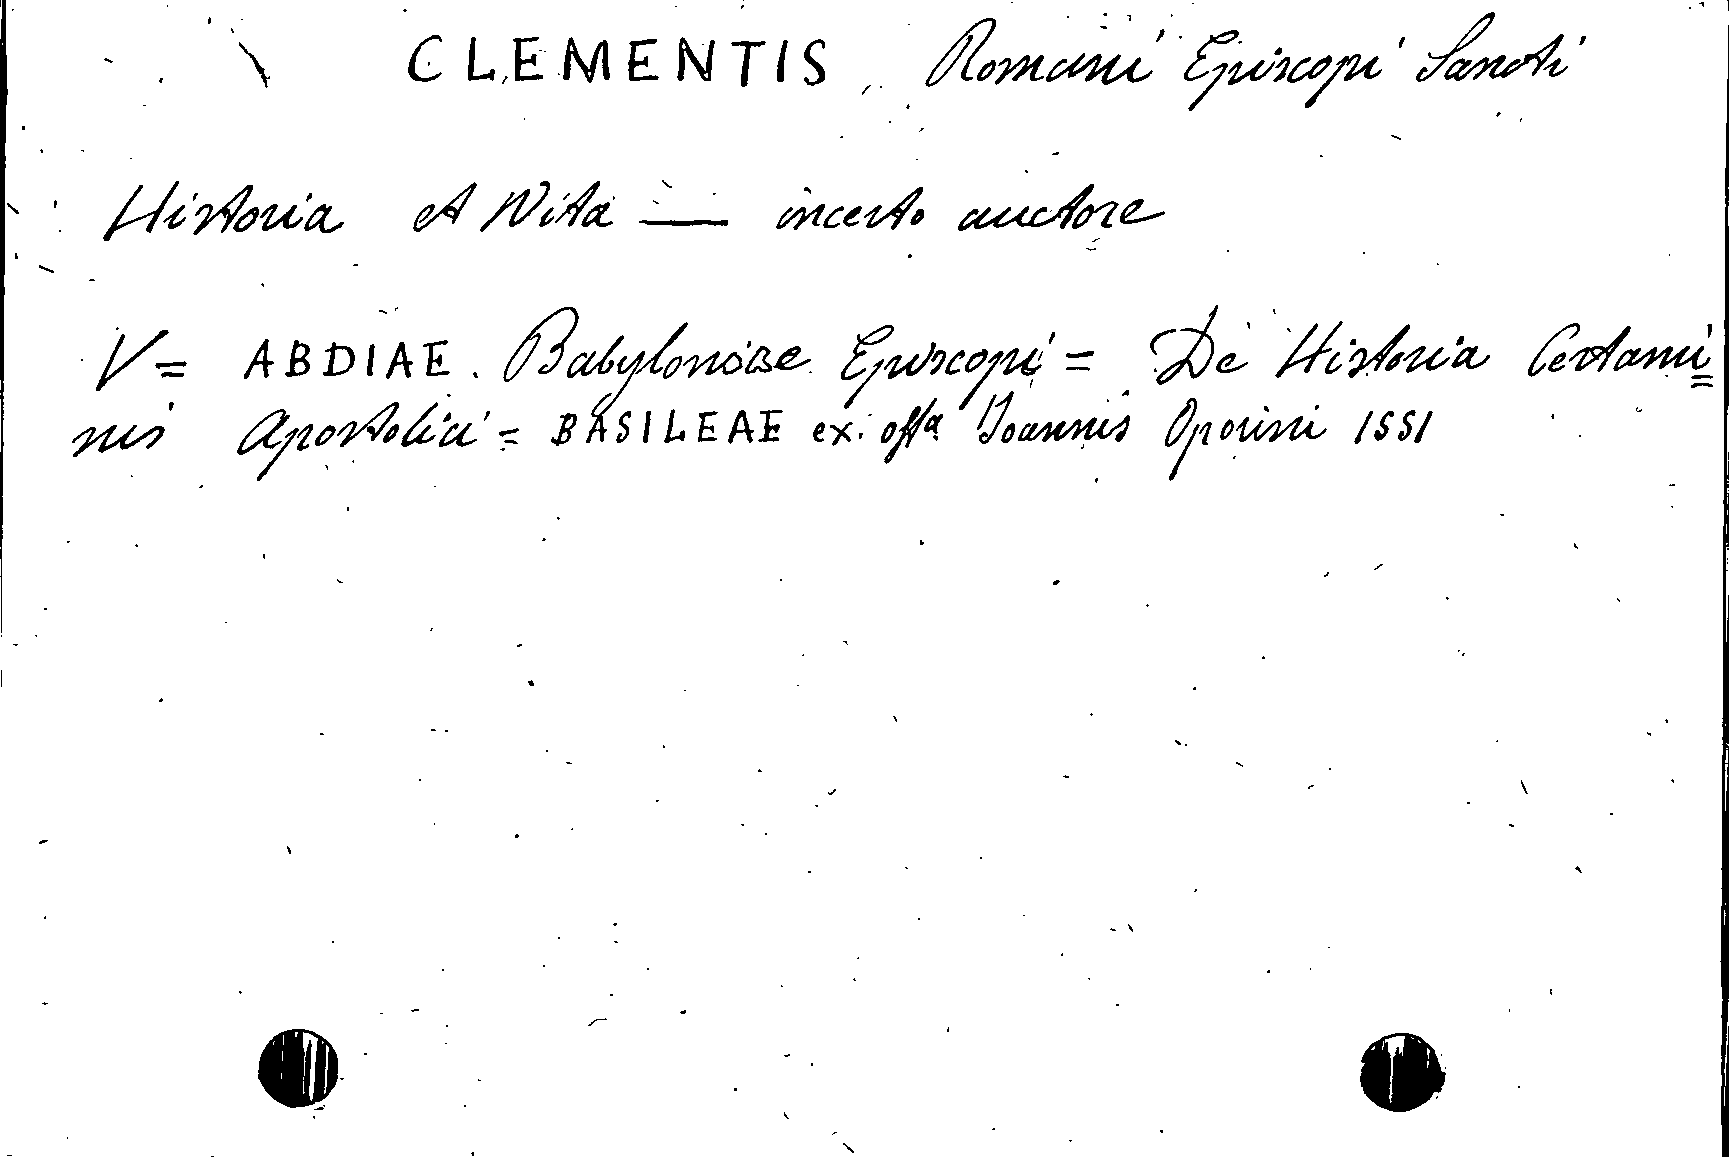 CLEMENTIS Romani Episcopi Sancti
Historia et Vita — incerto auctore
V= ABDIAE. Babyloniae Episcopi = De Historia Certami=
nis Apostolici = BASILEAE ex. offa Joannis Oporini 1551